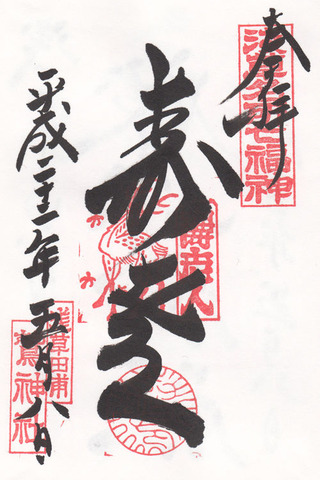 奉拝
浅草名所七福神
寿老人
壽老人
平成 年 五月八日
淺草田甫
鷲神社